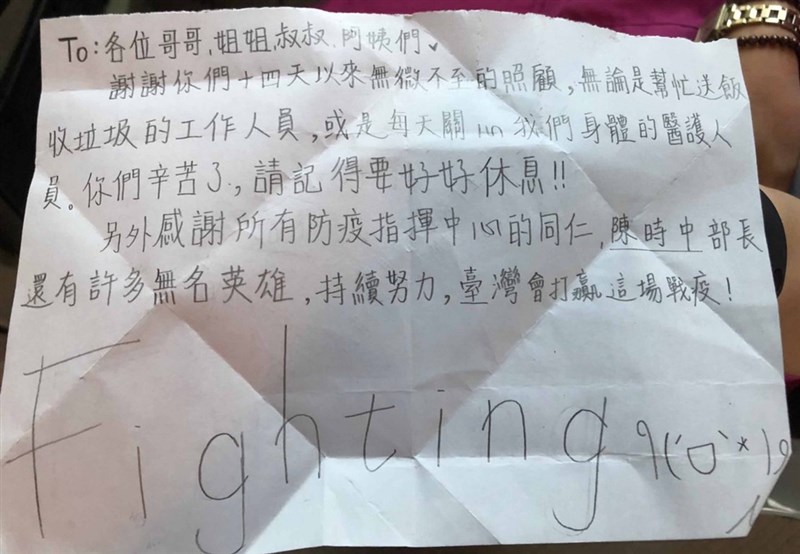 To：各位哥哥、姐姐、叔叔、阿姨們、
謝謝你們十四天以來無微不至的照顧，無論是幫忙送飯
收垃圾的工作人員，或是每天關心我們身體的醫護人
員。你們辛苦了，請記得要好好休息!!
另外感謝所有防疫指揮中心的同仁、陳時中部長
還有許多無名英雄，持續努力，臺灣會打贏這場戰疫！
Fighting٩(ˊㅁˋ*)و